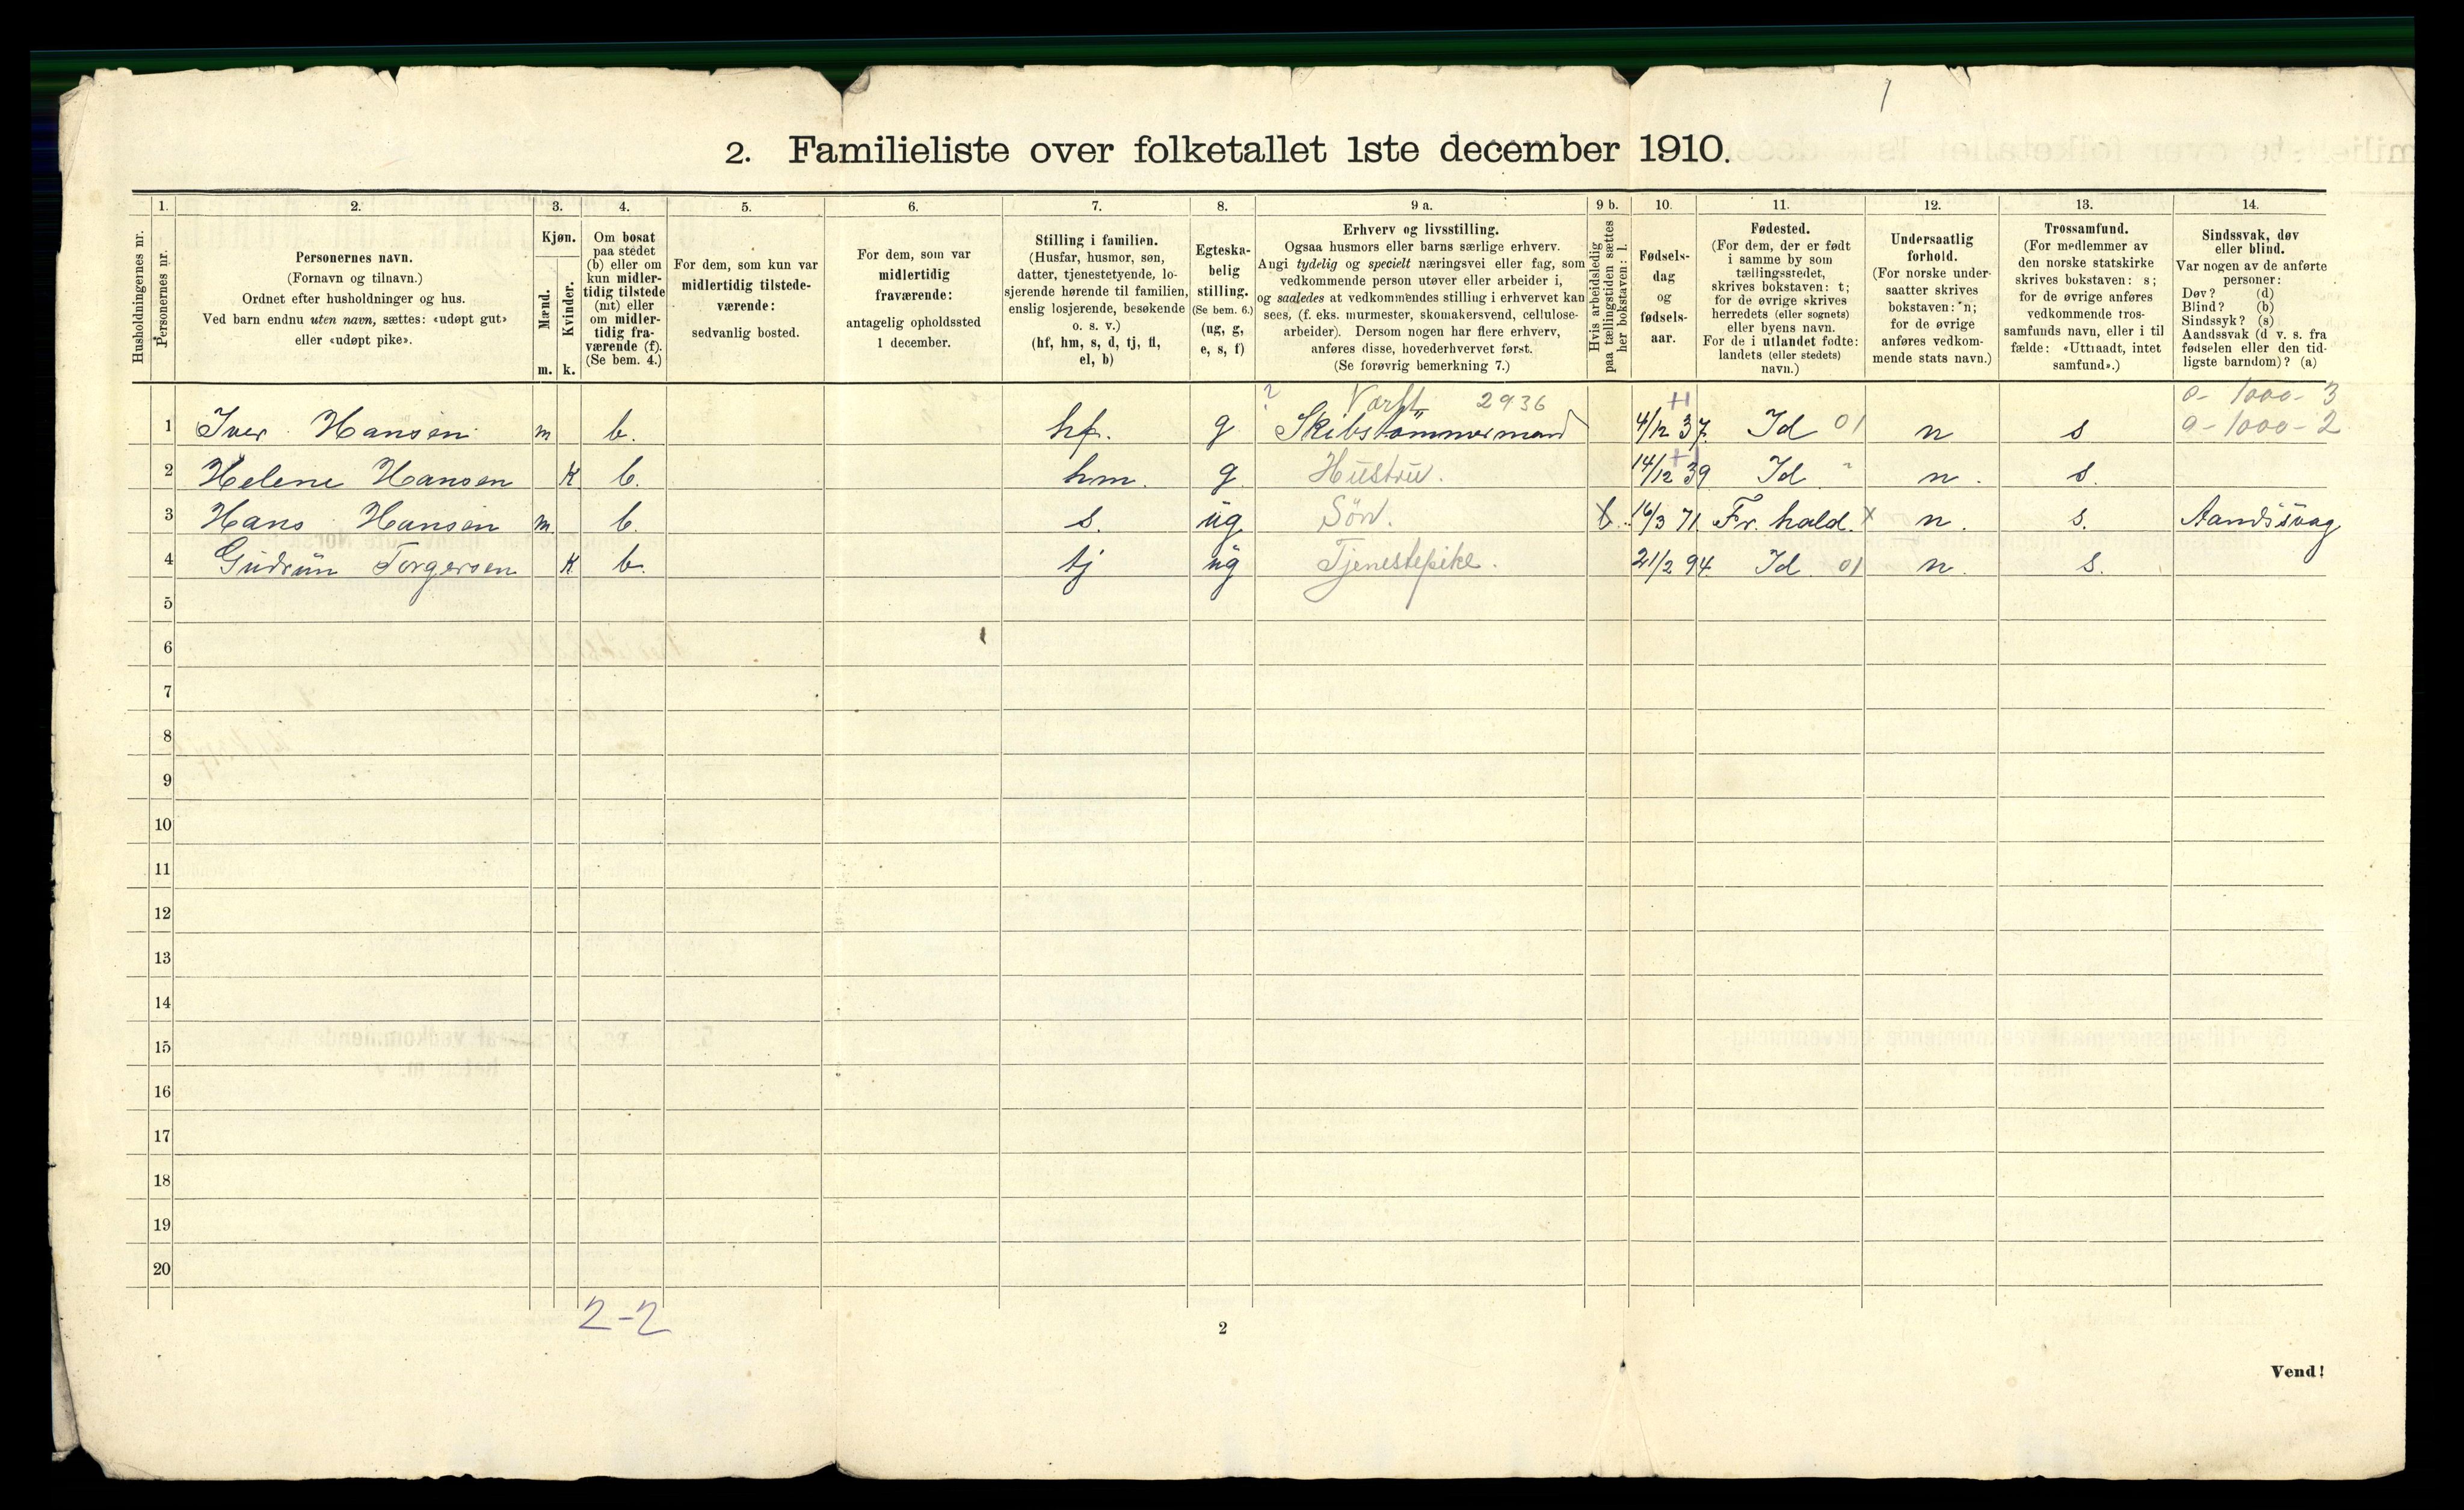 2. Familieliste over folketallet 1ste december 1910.
Husholdningernes nr.
1.
Personernes nr.
2.
Personernes navn.
(Fornavn og tilnavn.)
Ordnet efter husholdninger og hus.
Ved barn endnu uten navn, sættes: «udøpt gut»
eller «udøpt pike».
3.
Kjøn.
Mænd.
Kvinder.
m. k.
4.
Om bosat
paa stedet
(b) eller om
kun midler-
tidig tilstede
(mt) eller
om midler-
tidig fra-
værende (f).
(Se bem. 4.)
5.
For dem, som kun var
midlertidig tilstede-
værende:
sedvanlig bosted.
6.
For dem, som var
midlertidig
fraværende:
antagelig opholdssted
1 december.
7.
Stilling i familien.
(Husfar, husmor, søn,
datter, tjenestetyende, lo-
sjerende hørende til familien,
enslig losjerende, besøkende
o. s. v.)
(hf, hm, s, d, tj, fl,
el, b)
8.
Egteska-
belig
stilling.
(Se bem. 6.)
(ug, g,
e, s, f)
9 a.
Erhverv og livsstilling.
Ogsaa husmors eller barns særlige erhverv.
Angi tydelig og specielt næringsvei eller fag, som
vedkommende person utøver eller arbeider i,
og saaledes at vedkommendes stilling i erhvervet kan
sees, (f. eks. murmester, skomakersvend, cellulose-
arbeider). Dersom nogen har flere erhverv,
anføres disse, hovederhvervet først.
(Se forøvrig bemerkning 7.)
9 b.
Hvis arbeidsledig
paa tællingstiden sættes
her bokstaven: l.
10.
Fødsels-
dag
og
fødsels-
aar.
11.
Fødested.
(For dem, der er født
i samme by som
tællingsstedet,
skrives bokstaven: t;
for de øvrige skrives
herredets (eller sognets)
eller byens navn.
For de i utlandet fødte:
landets (eller stedets)
navn.)
12.
Undersaatlig
forhold.
(For norske under-
saatter skrives
bokstaven: n;
for de øvrige
anføres vedkom-
mende stats navn.)
13.
Trossamfund.
(For medlemmer av
den norske statskirke
skrives bokstaven: s;
for de øvrige anføres
vedkommende tros-
samfunds navn, eller i til
fælde: «Uttraadt, intet
samfund».)
14.
Sindssvak, døv
eller blind.
Var nogen av de anførte
personer:
Døv? (d)
Blind? (b)
Sindssyk? (s)
Aandssvak (d v. s. fra
fødselen eller den tid-
ligste barndom)? (a)
? Værft 2936 0- 1000- 3
1 Iver Hansen m b. hf. g Skibstömmermand 4/12 37. Id 01 n s 0- 1000- 2
2 Helene Hansen K b. hm. g Hustru. 14/12 39 Id " n. s.
3 Hans Hansen m b. s. ug Sön. 16/3 71 Fr. hald. x n. s. Aandssvag
4 Gudrun Torgersen K b. tj ug Tjenestepike. 21/2 94 Id 01 n. s.
5
6
7
8
9
10
11
12
13
14
15
16
17
18
19
20
2-2
2
Vend!